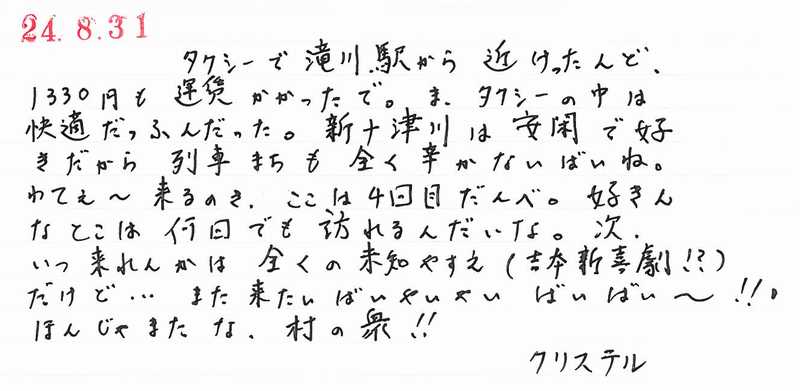 24.8.31
タクシーで滝川駅から近けったんど、
1330円も運賃かかったで。ま、タクシーの中は
快適だっふんだった。新十津川は安閑で好
きだから列車まちも全く辛かないばいね。
わてぇ〜来るのさ、ここは4回目だんべ。好きん
なとこは何回でも訪れるんだいな。次、
いつ来れんかは全くの未知やすえ(吉本新喜劇!?)
だけど… また来たいばいやいやい ばいばい〜!!。
ほんじゃまたな、村の衆!!
クリステル